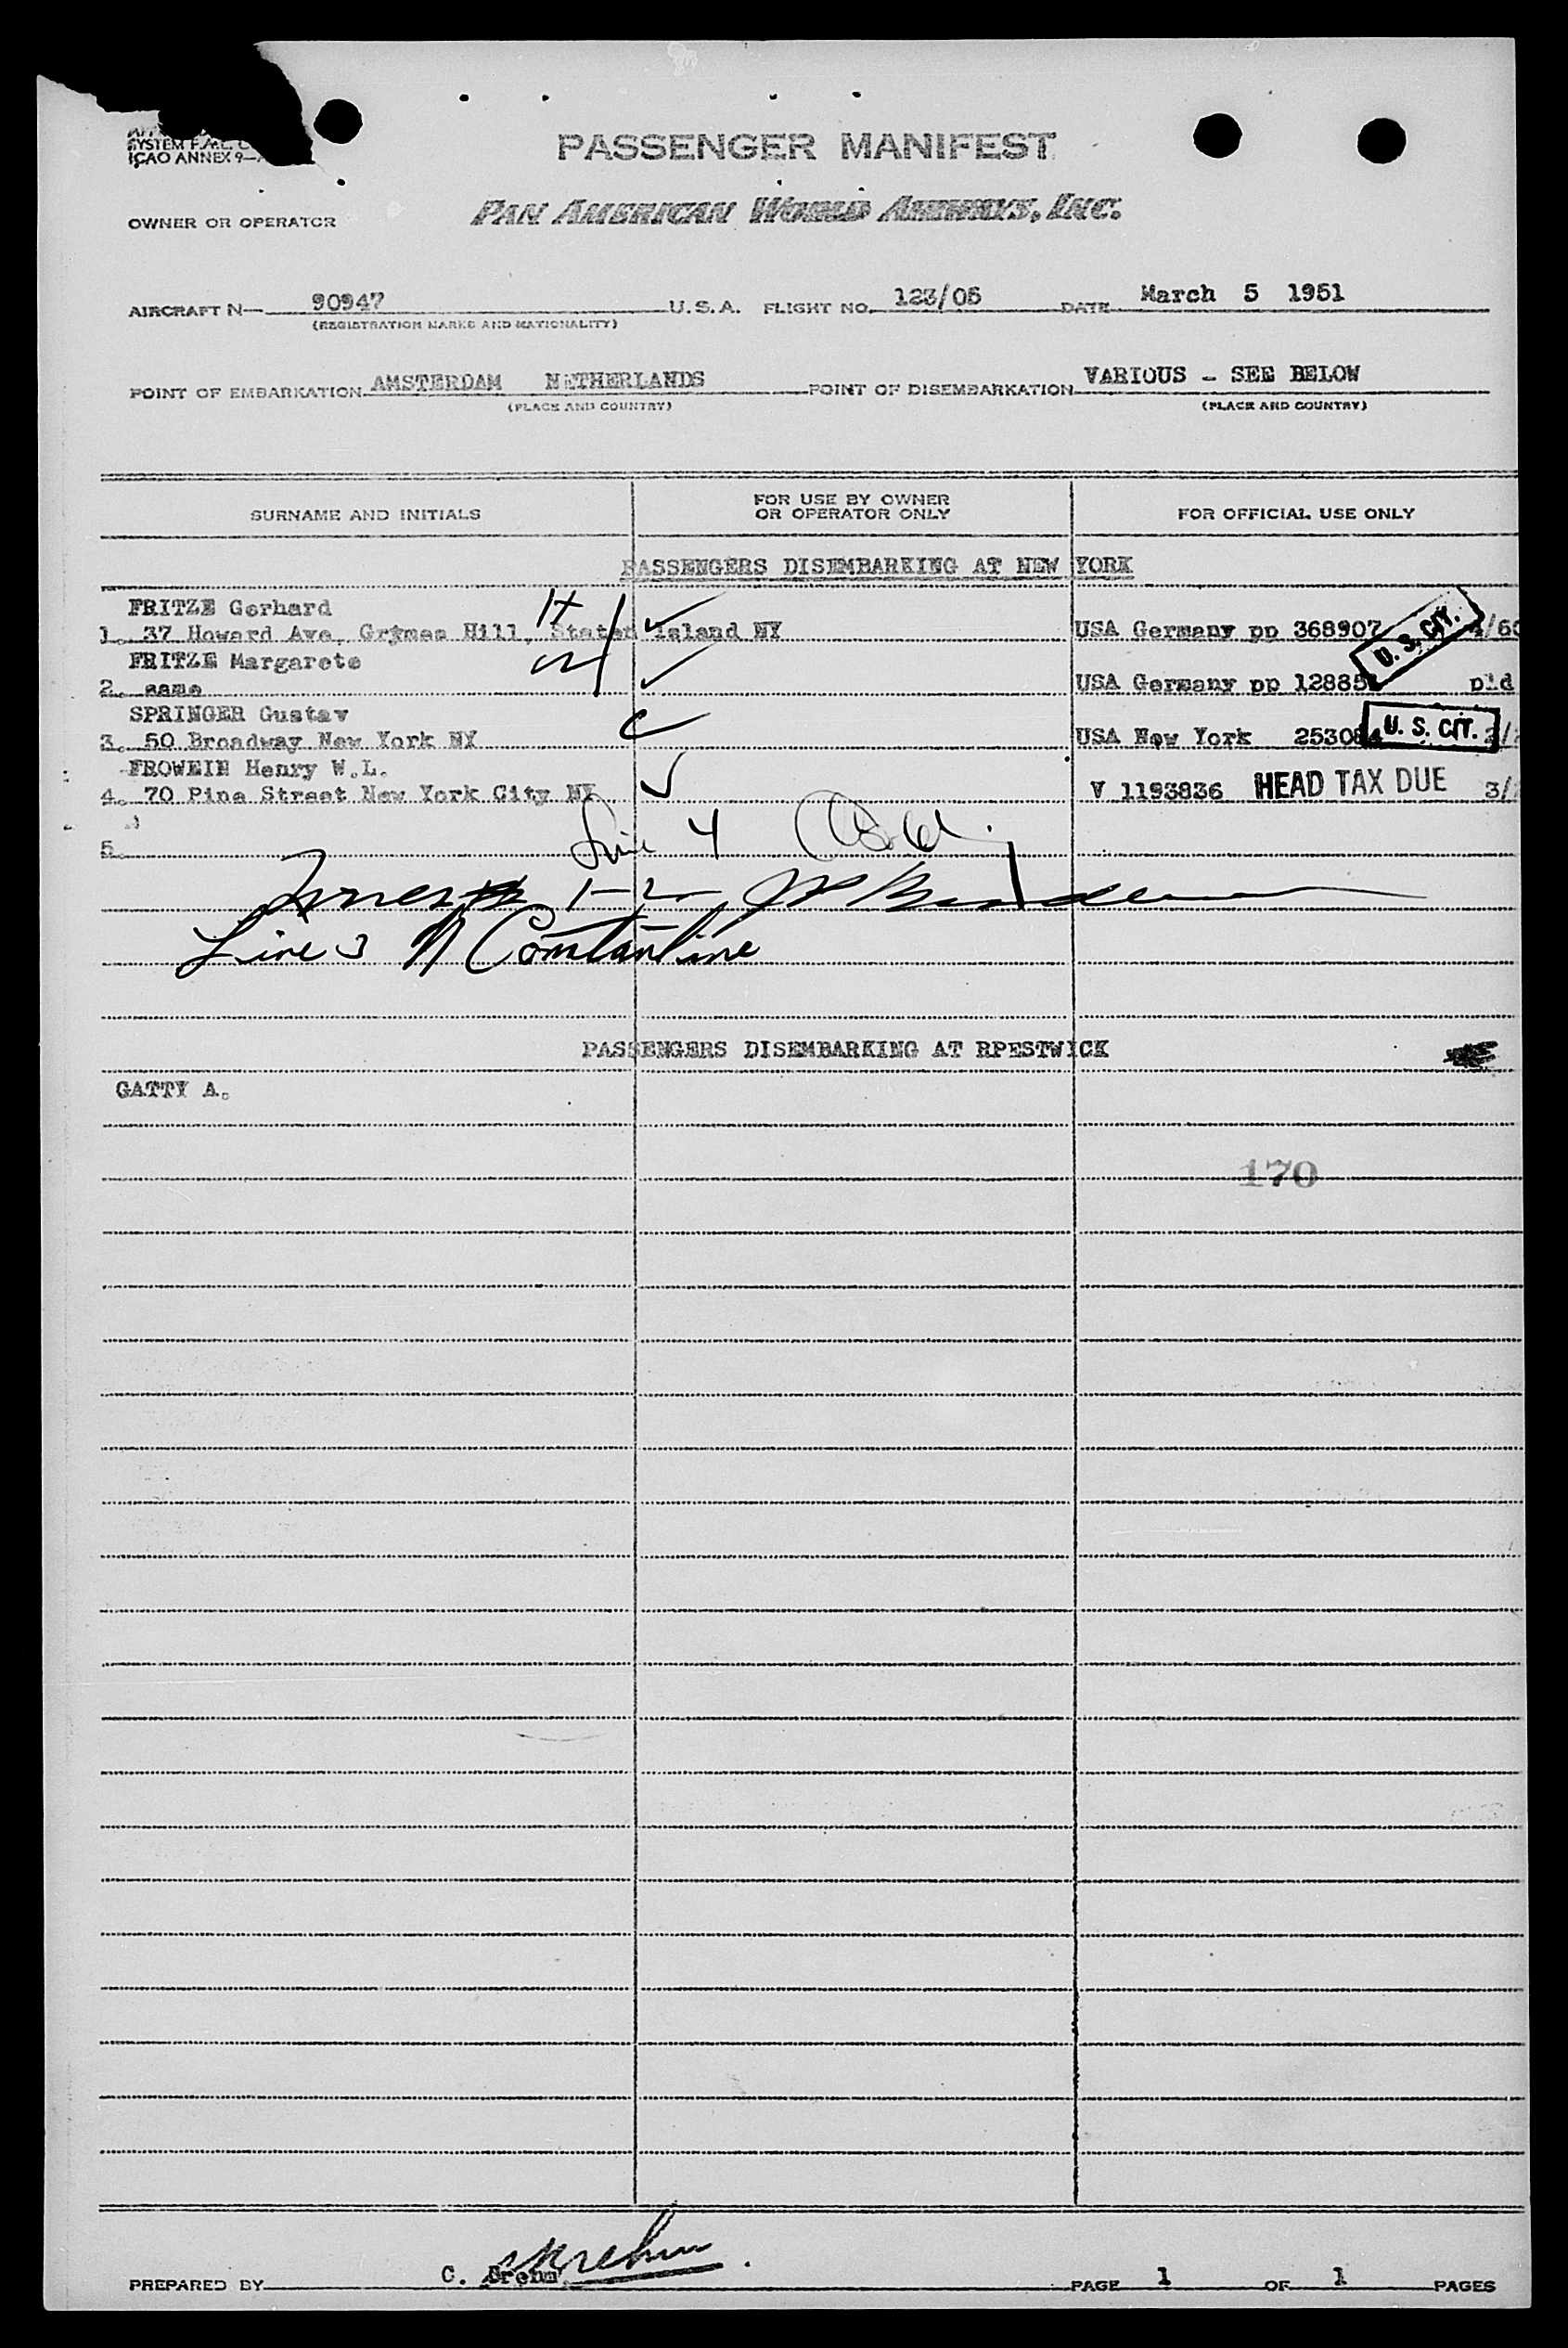 SYSTEM F.M.C.
ICAO ANNEX 9—
PASSENGER MANIFEST
OWNER OR OPERATOR PAN AMERICAN WORLD AIRWAYS, INC.
AIRCRAFT N— 90947 U.S.A. FLIGHT NO. 123/05 DATE March 5 1951
(REGISTRATION MARKS AND NATIONALITY)
POINT OF EMBARKATION AMSTERDAM NETHERLANDS POINT OF DISEMBARKATION VARIOUS - SEE BELOW
(PLACE AND COUNTRY) (PLACE AND COUNTRY)
SURNAME AND INITIALS FOR USE BY OWNER OR OPERATOR ONLY FOR OFFICIAL USE ONLY
PASSENGERS DISEMBARKING AT NEW YORK
FRITZE Gerhard
1. 37 Howard Ave, Grymes Hill, Staten Island NY USA Germany pp 368907 U. S. CIT. 4/60
FRITZE Margarete
2. same USA Germany pp 12885 pld
SPRINGER Gustav
3. 50 Broadway New York NY USA New York 25308 U. S. CIT.
FROWEIN Henry W.L.
4. 70 Pine Street New York City NY V 1193836 HEAD TAX DUE 3/
5. Line 4
Lines 1-2
Line 3 N Constantine
PASSENGERS DISEMBARKING AT RPESTWICK
GATTY A.
170
PREPARED BY C. Brehm PAGE 1 OF 1 PAGES